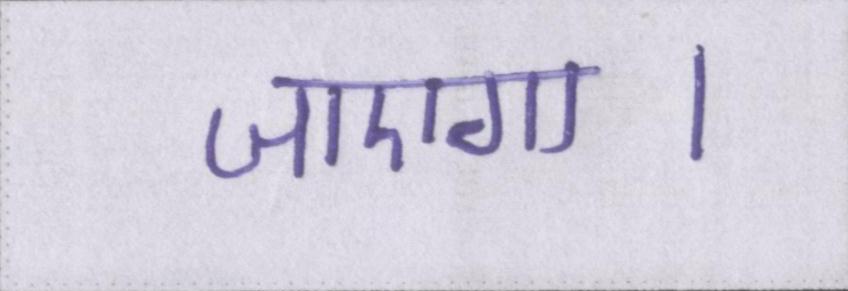 जाएगा ।